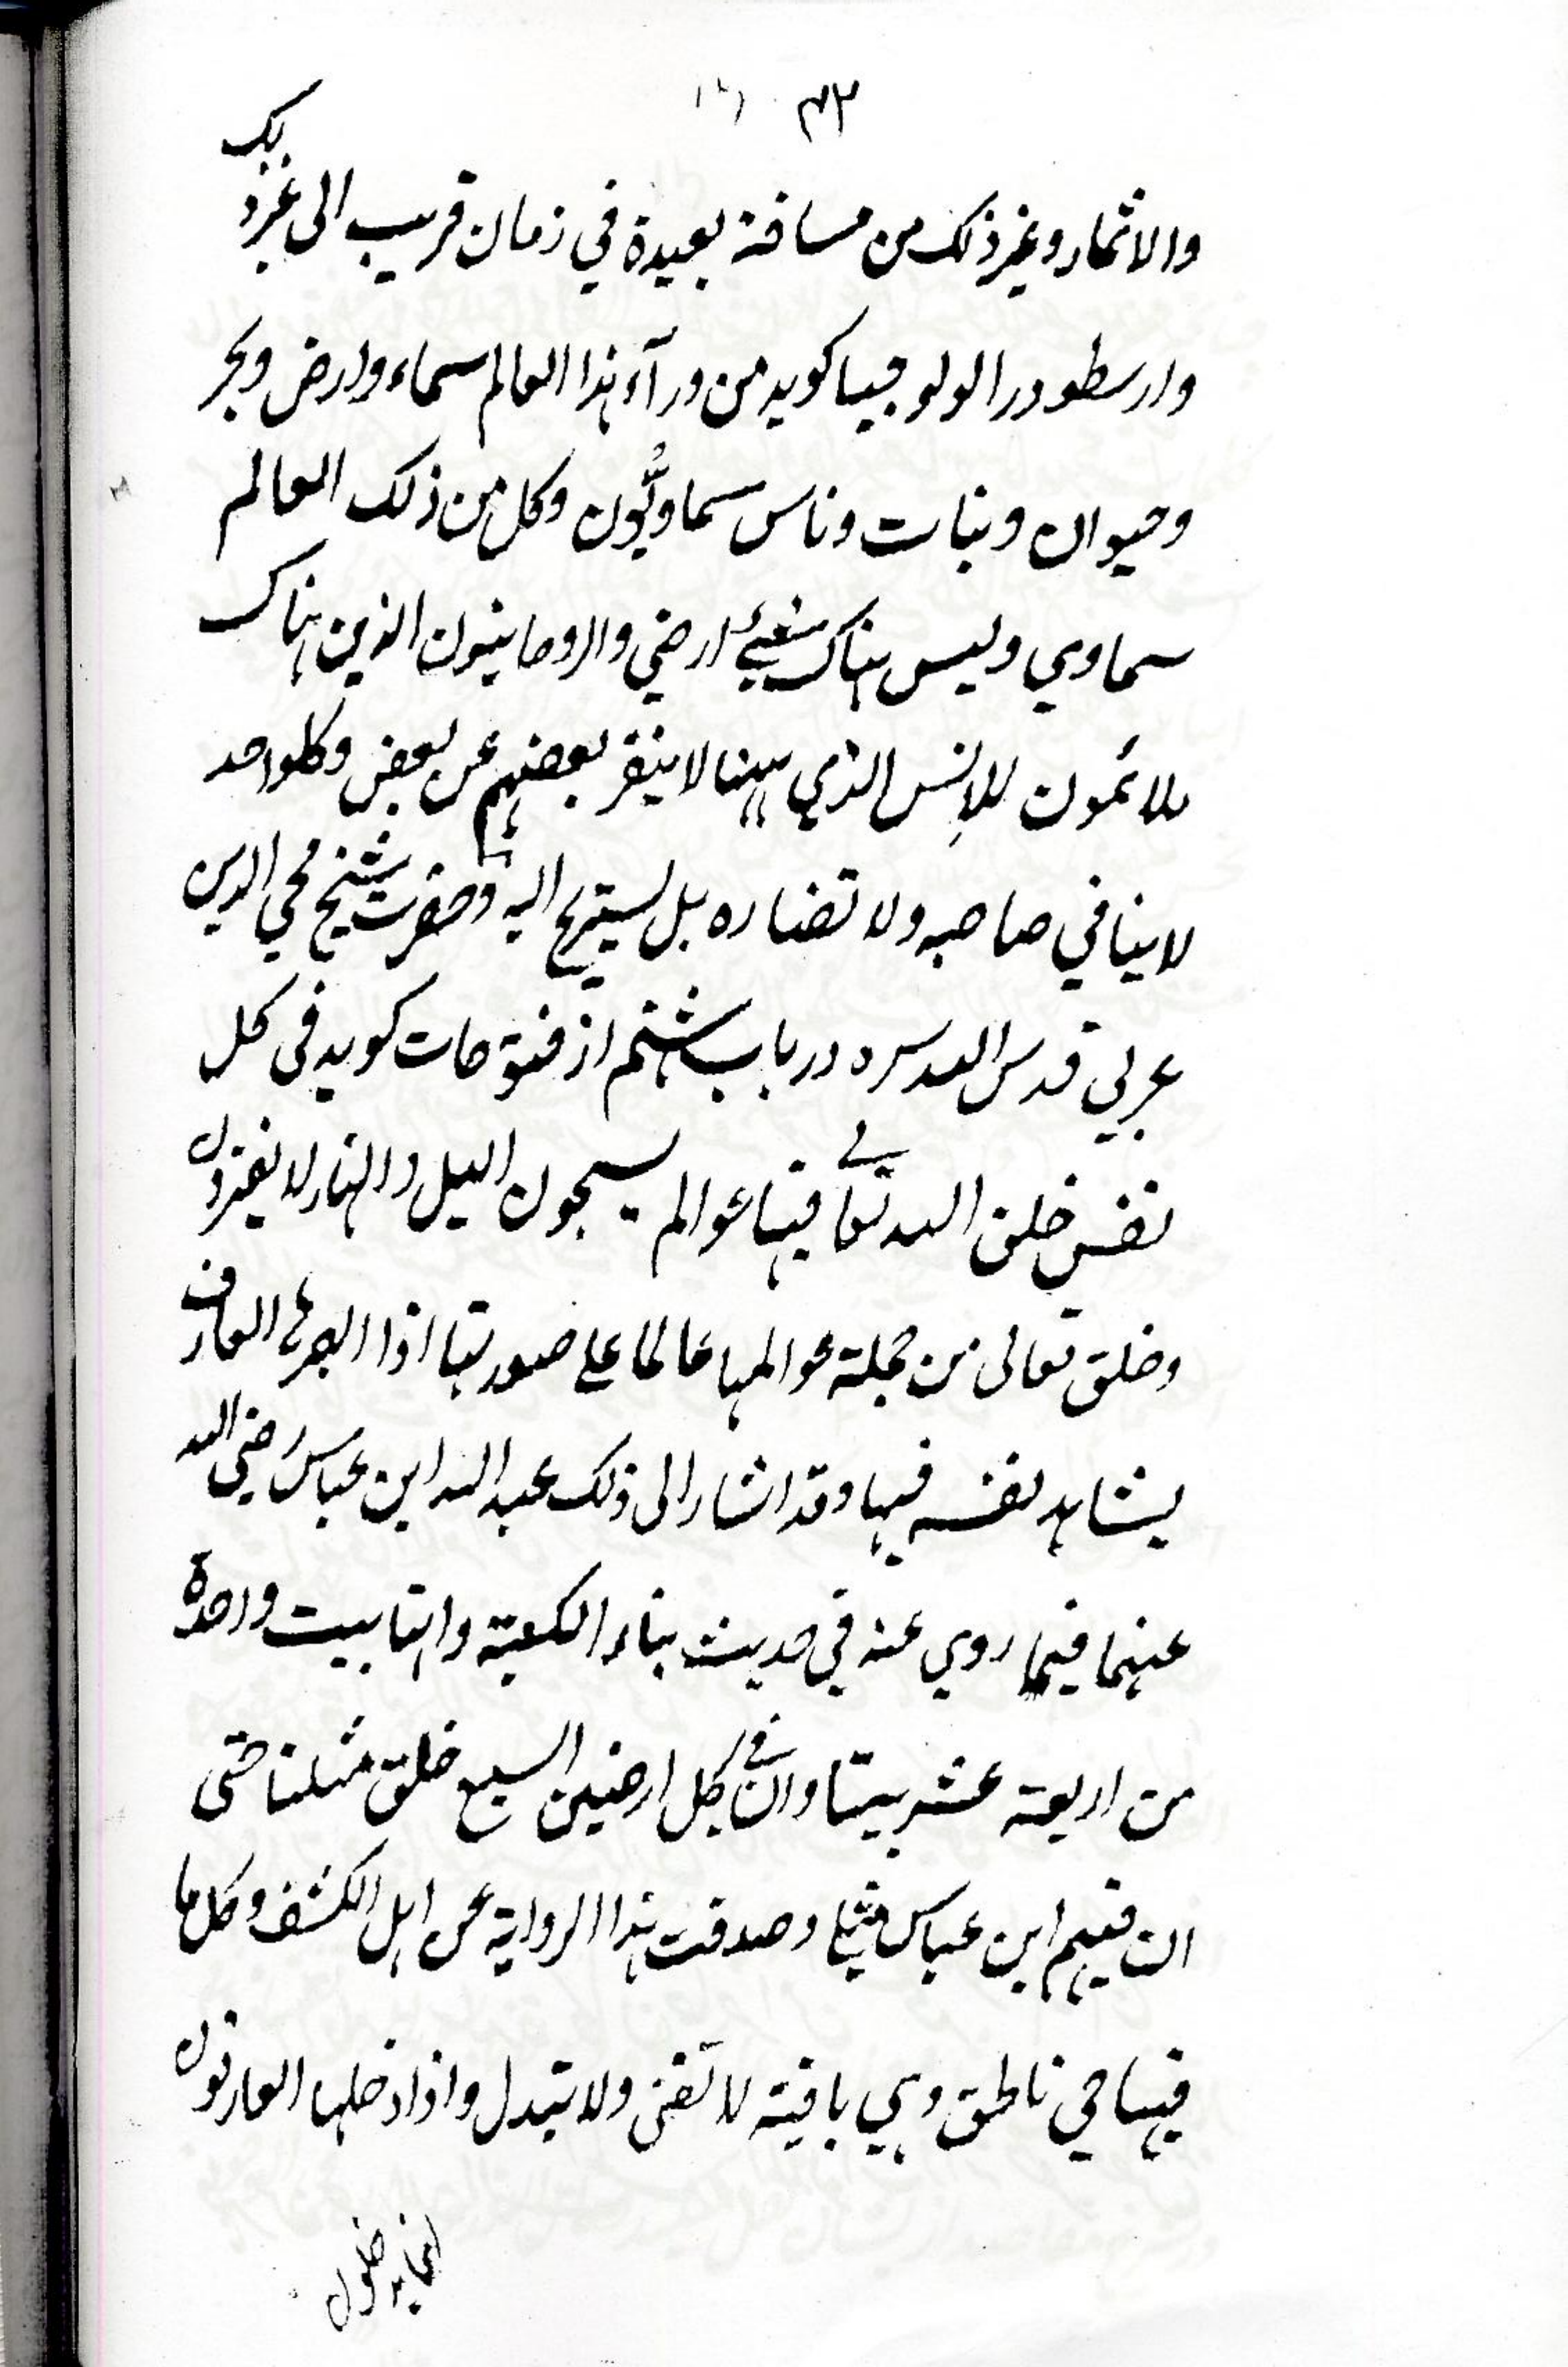 ۷۲
والاثمار وغير ذلك من مسافة بعيدة في زمان قريب الى غير ذلك
وارسطو در اثولوجيا كويد من ورآء هذا العالم سماء وارض وبحر
وحيوان ونبات وناس سماويّون وكل من ذلك العالم
سماوي وليس هناك شيئ ارضي والروحانيون الذين هناك
ملائمون للانس الذي ههنا لا ينفر بعضهم عن بعض وكلواحد
لاينافي صاحبه ولا تضاره بل يستريح اليه وحضرت شيخ محي الدين
عربي قدس الله سره در باب هشتم از فتوحات كويد في كل
نفس خلق الله تعالى فيها عوالم يسبحون الليل والنهار لا يفترون
وخلق تعالى من جملة عوالمها عالما علي صورتها اذا ابصرها العارف
يشاهد نفسه فيها وقد اشار الى ذلك عبد الله ابن عباس رضي الله
عنهما فيما روي عنه في حديث بناء الكعبة وانها بيت واحدة
من اربعة عشر بيتا وان في كل ارضين السبع خلق مثلنا حتى
ان فيهم ابن عباس مثلي وصدقت هذا الرواية عن اهل الكشف وكل ما
فيها حي ناطق وهي باقية لا تفنى ولا يتبدل واذا دخلها العارفون
انما يدخلون